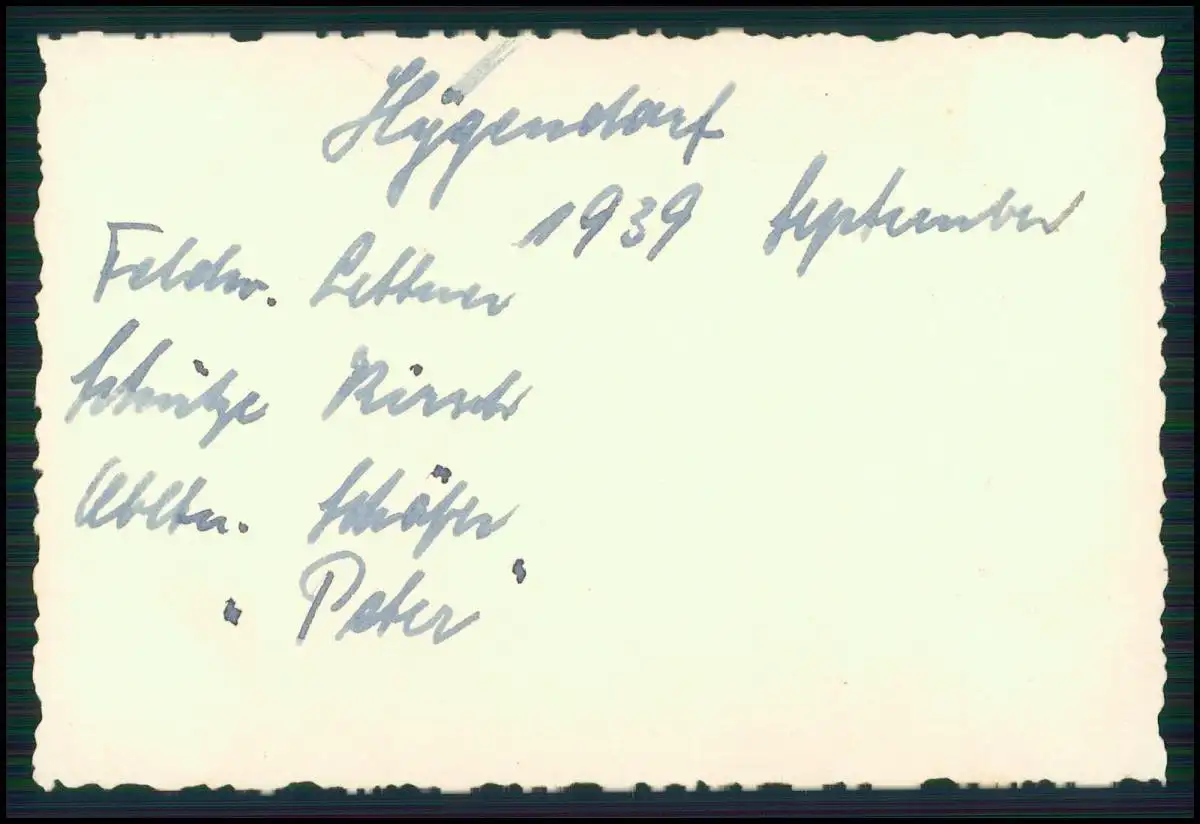 Hÿgendorf
1939 September
Feldw. Lettner
Schütze Kirsch
Schäfer
" Peter "